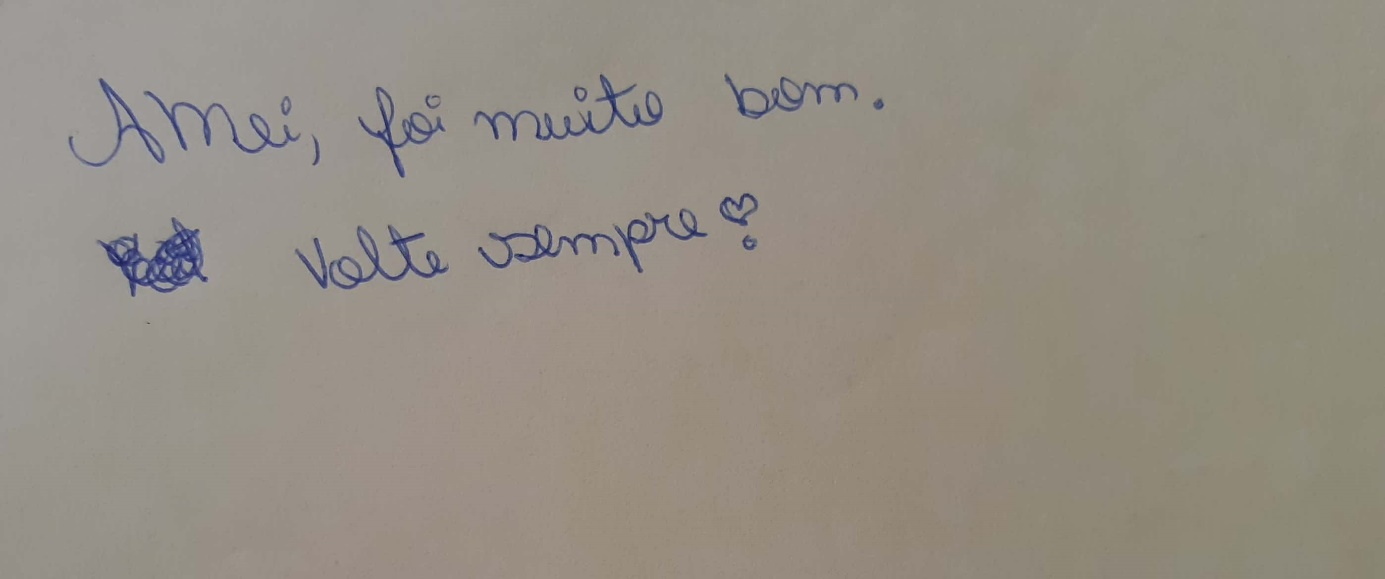 AMei, foi muito bom.
Volte sempre